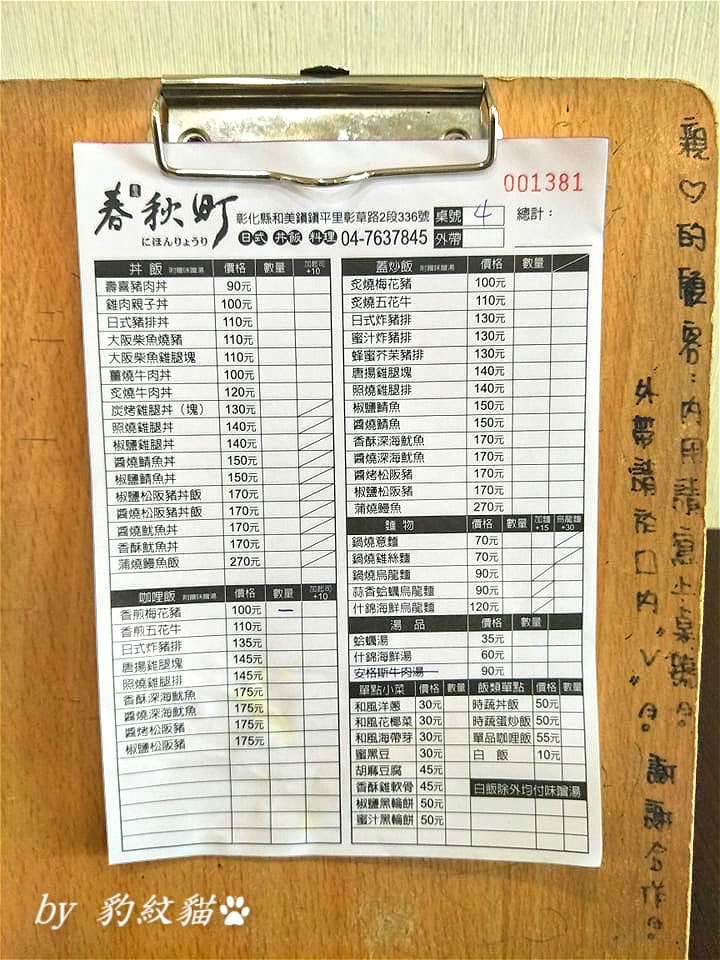 001381
春秋町
にほんりょうり
彰化縣和美鎮鎮平里彰草路2段336號
日式 丼飯 料理 04-7637845
桌號 4 總計：
外帶
丼飯 附贈味噌湯 價格 數量 加起司+10
壽喜豬肉丼 90元
雞肉親子丼 100元
日式豬排丼 110元
大阪柴魚燒豬 110元
大阪柴魚雞腿塊 110元
薑燒牛肉丼 100元
炙燒牛肉丼 120元
炭烤雞腿丼（塊） 130元
照燒雞腿丼 140元
椒鹽雞腿丼 140元
醬燒鯖魚丼 150元
椒鹽鯖魚丼 150元
椒鹽松阪豬丼飯 170元
醬燒松阪豬丼飯 170元
醬燒魷魚丼 170元
香酥魷魚丼 170元
蒲燒鰻魚飯 270元
咖哩飯 附贈味噌湯 價格 數量 加起司+10
香煎梅花豬 100元 一
香煎五花牛 110元
日式炸豬排 135元
唐揚雞腿塊 145元
照燒雞腿排 145元
香酥深海魷魚 175元
醬燒深海魷魚 175元
醬烤松阪豬 175元
椒鹽松阪豬 175元
蓋炒飯 附贈味噌湯 價格 數量
炙燒梅花豬 100元
炙燒五花牛 110元
日式炸豬排 130元
蜜汁炸豬排 130元
蜂蜜芥茉豬排 130元
唐揚雞腿塊 140元
照燒雞腿排 140元
椒鹽鯖魚 150元
醬燒鯖魚 150元
香酥深海魷魚 170元
醬燒深海魷魚 170元
醬烤松阪豬 170元
椒鹽松阪豬 170元
蒲燒鰻魚 270元
麵物 價格 數量 加麵+15 烏龍麵+30
鍋燒意麵 70元
鍋燒雞絲麵 70元
鍋燒烏龍麵 90元
蒜香蛤蠣烏龍麵 90元
什錦海鮮烏龍麵 120元
湯品 價格 數量
蛤蠣湯 35元
什錦海鮮湯 60元
安格斯牛肉湯 90元
單點小菜 價格 數量
和風洋蔥 30元
和風花椰菜 30元
和風海帶芽 30元
蜜黑豆 30元
胡麻豆腐 45元
香酥雞軟骨 45元
椒鹽黑輪餅 50元
蜜汁黑輪餅 50元
飯類單點 價格 數量
時蔬丼飯 50元
時蔬蛋炒飯 50元
單品咖哩飯 55元
白飯 10元
白飯除外均付味噌湯
親♡的顧客：內用請寫上桌號。
外帶請在口內"V"。謝謝合作。
by 豹紋貓